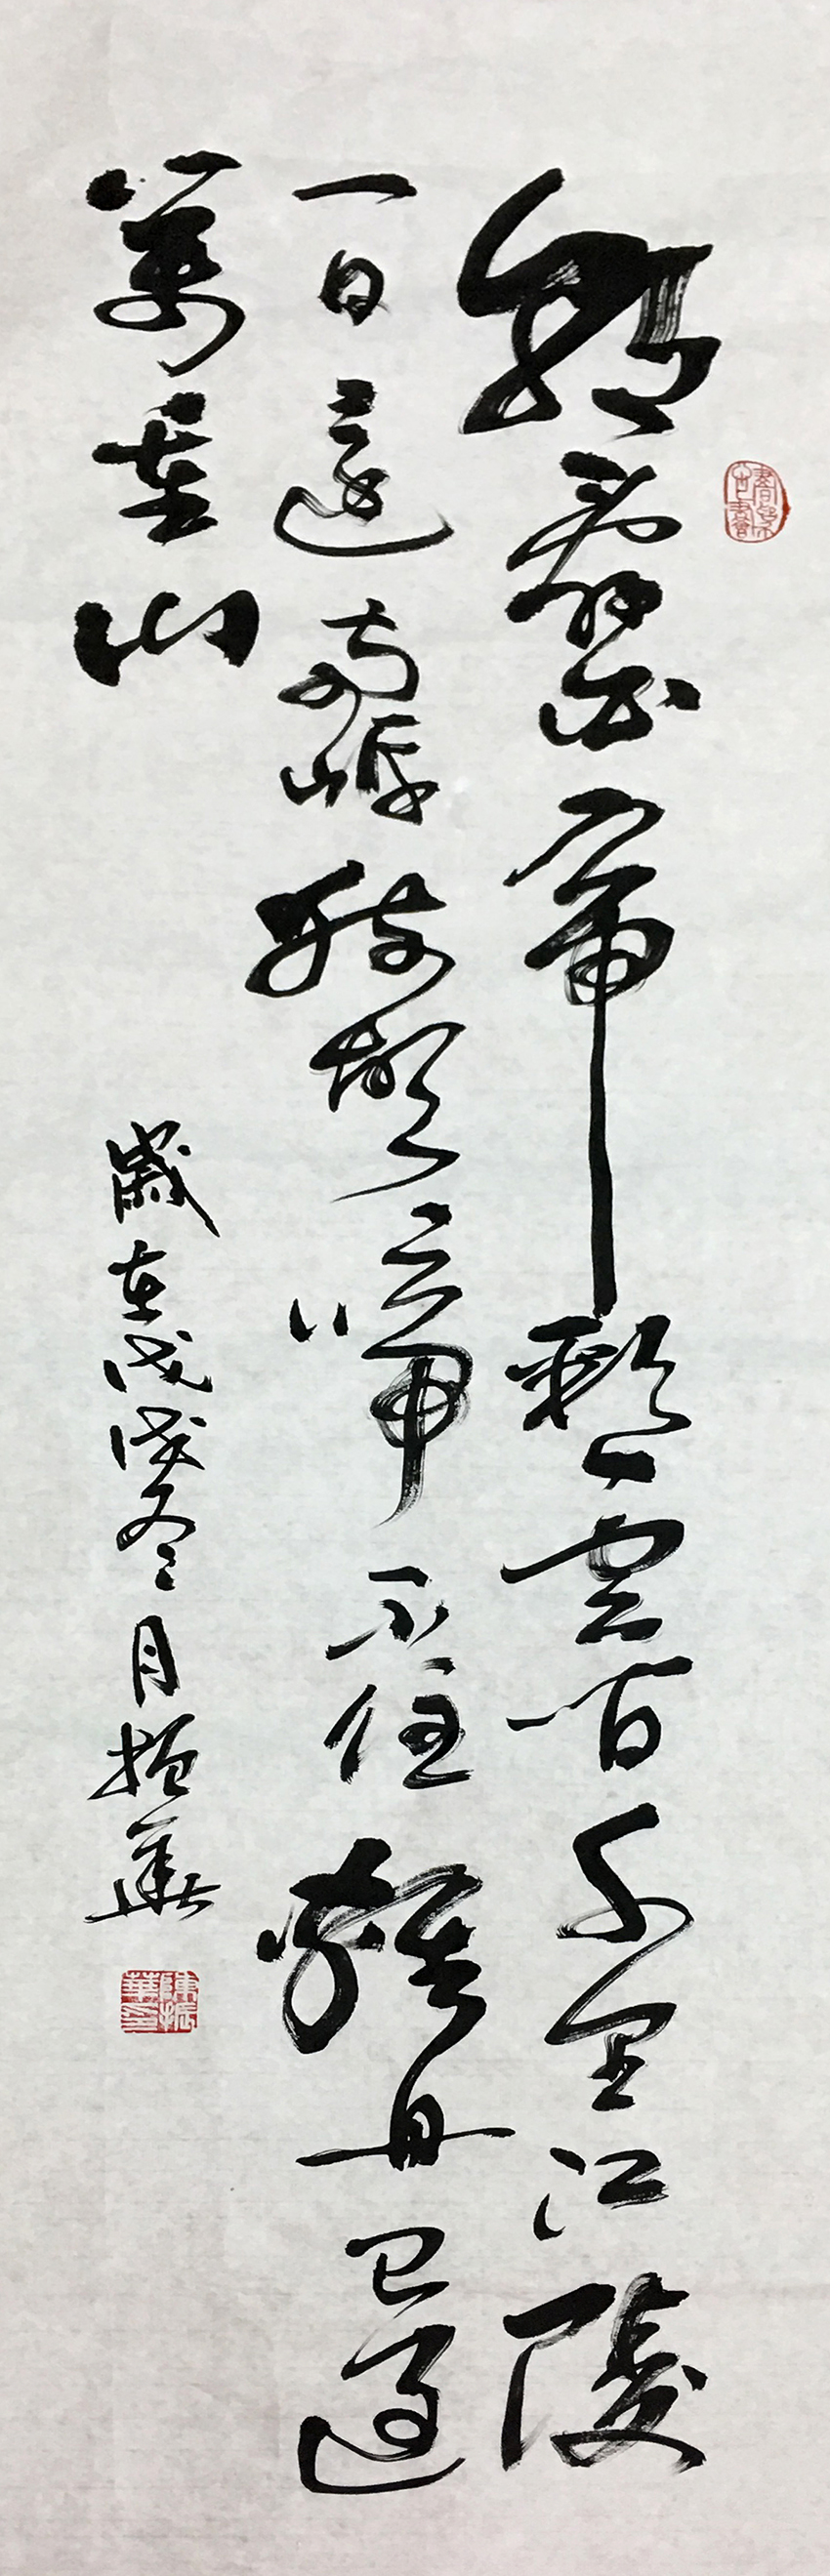 朝辭白帝彩雲間千里江陵
一日還兩岸猿聲啼不住輕舟已過
萬重山
歲在戊戌冬月振華
陳振華印